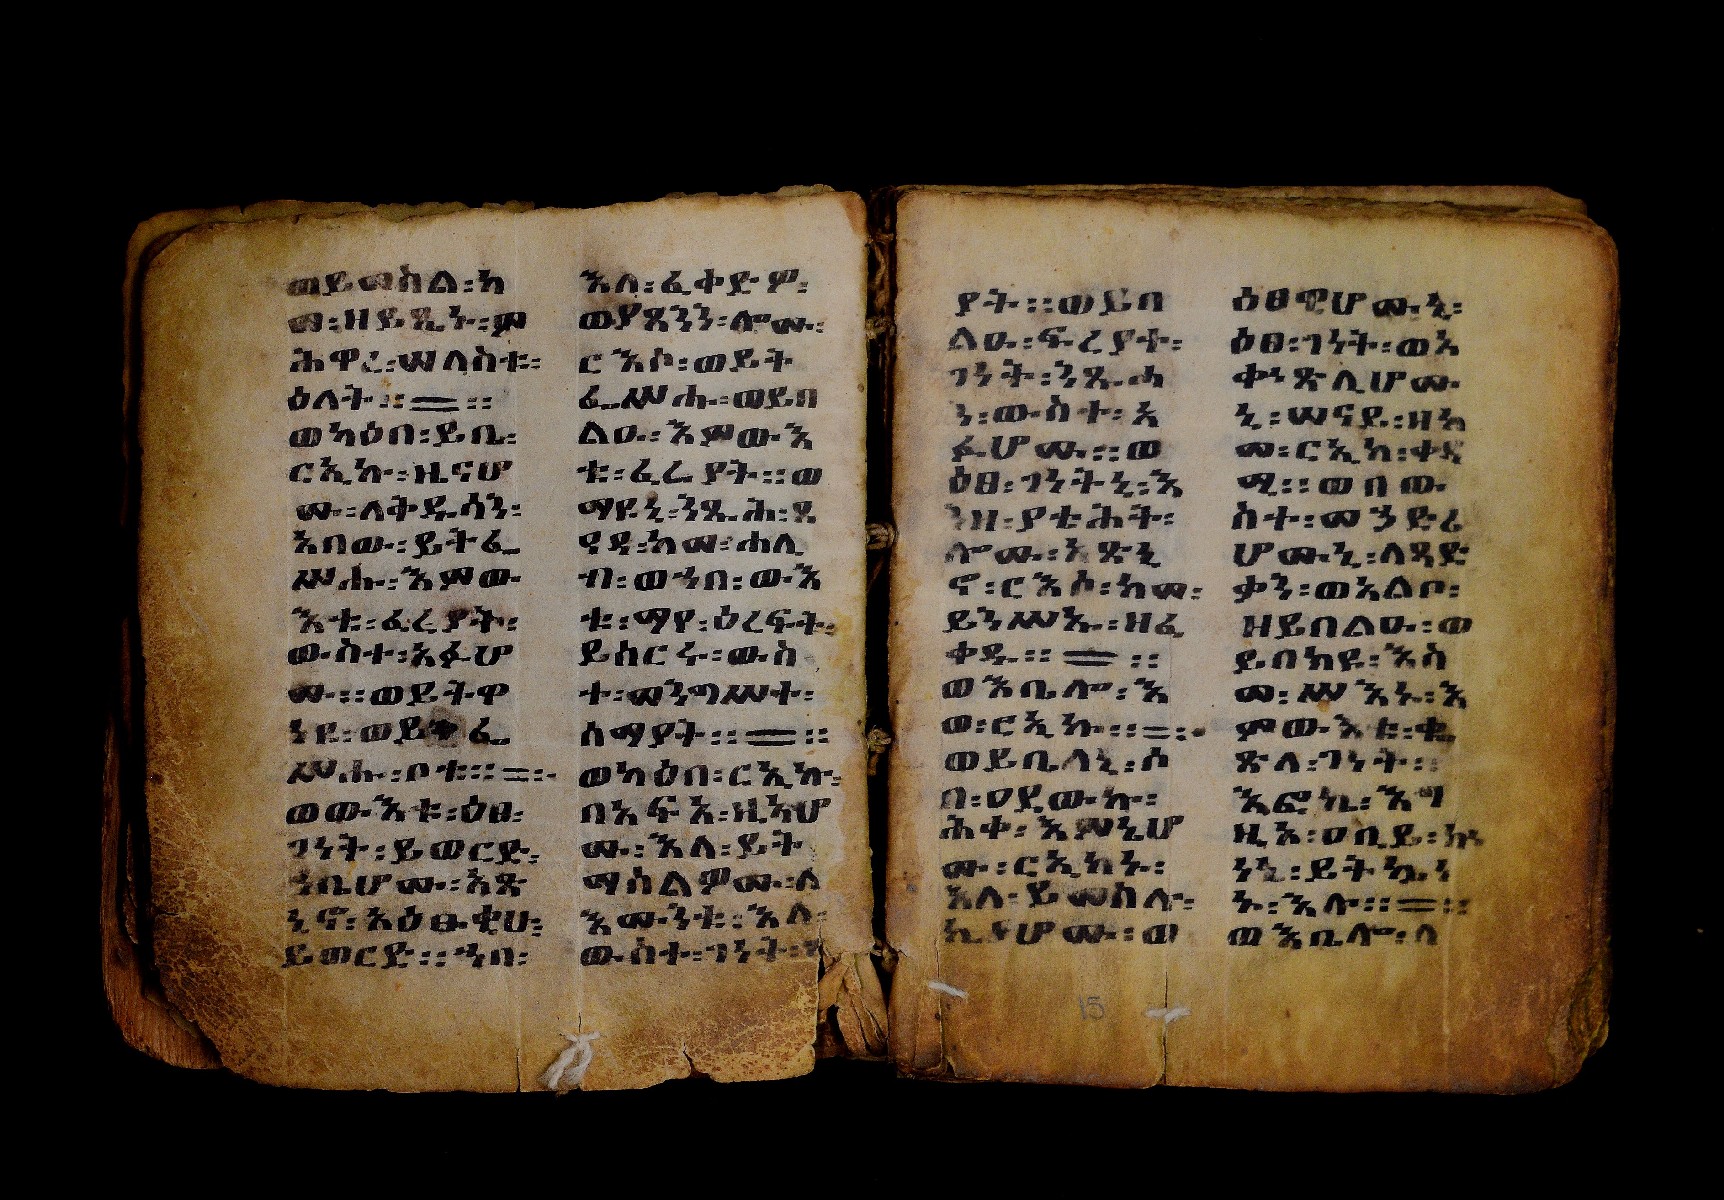 ወይመስል፡ከ
መ፡ዘይጼኑ፡ም
ሕዋረ፡ሠለስቱ፡
ዕለት፡፡ ፡፡
ወካዕበ፡ይቤ፡
ርኢኩ፡ዚናሆ
ሙ፡ለቅዱሳን፡
አበው፡ይትፌ
ሥሑ፡እምው
እቱ፡ፈረያት፡
ውስተ፡አፉሆ
ሙ፡፡ወይትዋ
ነዩ፡ወይትፌ
ሥሑ፡ቦቱ፡፡
ወውእቱ፡ዕፀ፡
ገነት፡ይወርድ፡
ኀቤሆሙ፡አጽ
ኒኖ፡አዕፁቂሁ፡
ይወርድ፡፡ኀበ፡
እለ፡ፈቀድዎ፡
ወያጸንን፡ሎሙ፡
ርእሶ፡ወይት
ፌሥሑ፡ወይበ
ልዑ፡እምውእ
ቱ፡ፈሬያት፡፡ወ
ማዩኒ፡ንጹሕ፡ጸ
ዓዳ፡ከመ፡ሐሊ
ብ፡ወኀበ፡ውእ
ቱ፡ማየ፡ዕረፍት፡
ይሰርሩ፡ውስ
ተ፡መንግሥተ፡
ሰማያት፡፡ ፡፡
ወካዕበ፡ርኢኩ፡
በአፍአ፡ዚአሆ
ሙ፡እለ፡ይት
ማሰልዎሙ፡ለ
እሙንቱ፡እለ፡
ውስተ፡ገነት፡
ያት፡፡ወይበ
ልዑ፡ፍረያተ፡
ገነት፡ንጹሐ
ነ፡ውስተ፡አ
ፉሆሙ፡፡ወ
ዕፀ፡ገነትኒ፡እ
ንዘ፡ያቲሕት፡
ሎሙ፡አጽኒ
ኖ፡ርእሶ፡ከመ፡
ይንሥኡ፡ዘፈ
ቀዱ፡፡ ፡፡
ወእቤሎ፡እ
ወ፡ርኢኩ፡፡
ወይቤለኒ፡ሶ
በ፡ዐያውኩ፡
ሕቀ፡እምኔሆ
ሙ፡ርኢከኑ፡
እለ፡ይመስሉ፡
ኪያሆሙ፡ወ
ዕፀዊሆሙኒ፡
ዕፀ፡ገነት፡ወአ
ቀጽሊሆሙ
ኒ፡ሠናይ፡ዘከ
መ፡ርኢከ፡ቀዳ
ሚ፡፡ወበው
ስተ፡መኃድረ
ሆሙኒ፡ለጻድ
ቃን፡ወአልቦ፡
ዘይበልዑ፡ወ
ይበኪዩ፡እስ
መ፡ሥእኑ፡እ
ምውእቱ፡ቈ
ጽለ፡ገነት፡፡
እፎኬ፡እግ
ዚአ፡ዐቢይ፡ኵ
ነኔ፡ይትኴነ
ኑ፡እሎ፡፡ ፡፡
ወእቤሎ፡ለ
15